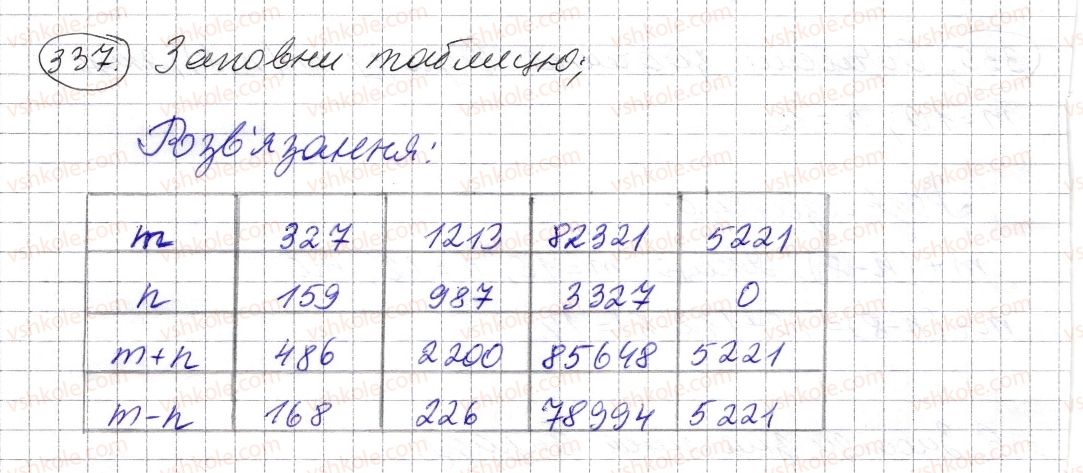 337. Заповни таблицю;
Розв'язання:
m 327 1213 82321 5221
n 159 987 3327 0
m+n 486 2200 85648 5221
m-n 168 226 78994 5221